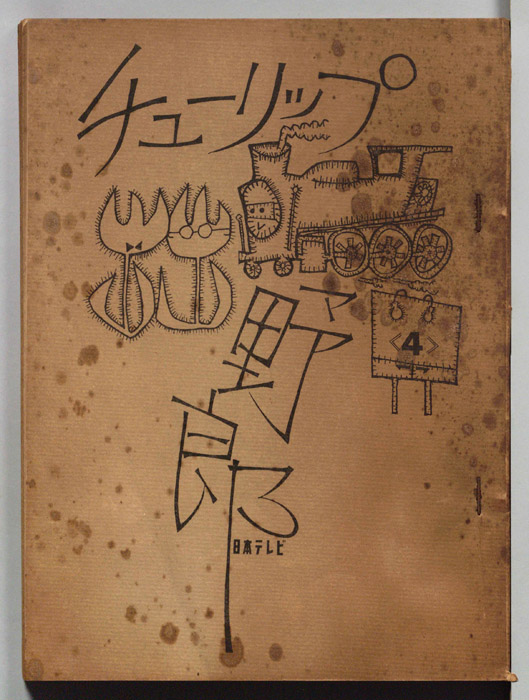 チューリップ
野郎
〈4〉
日本テレビ